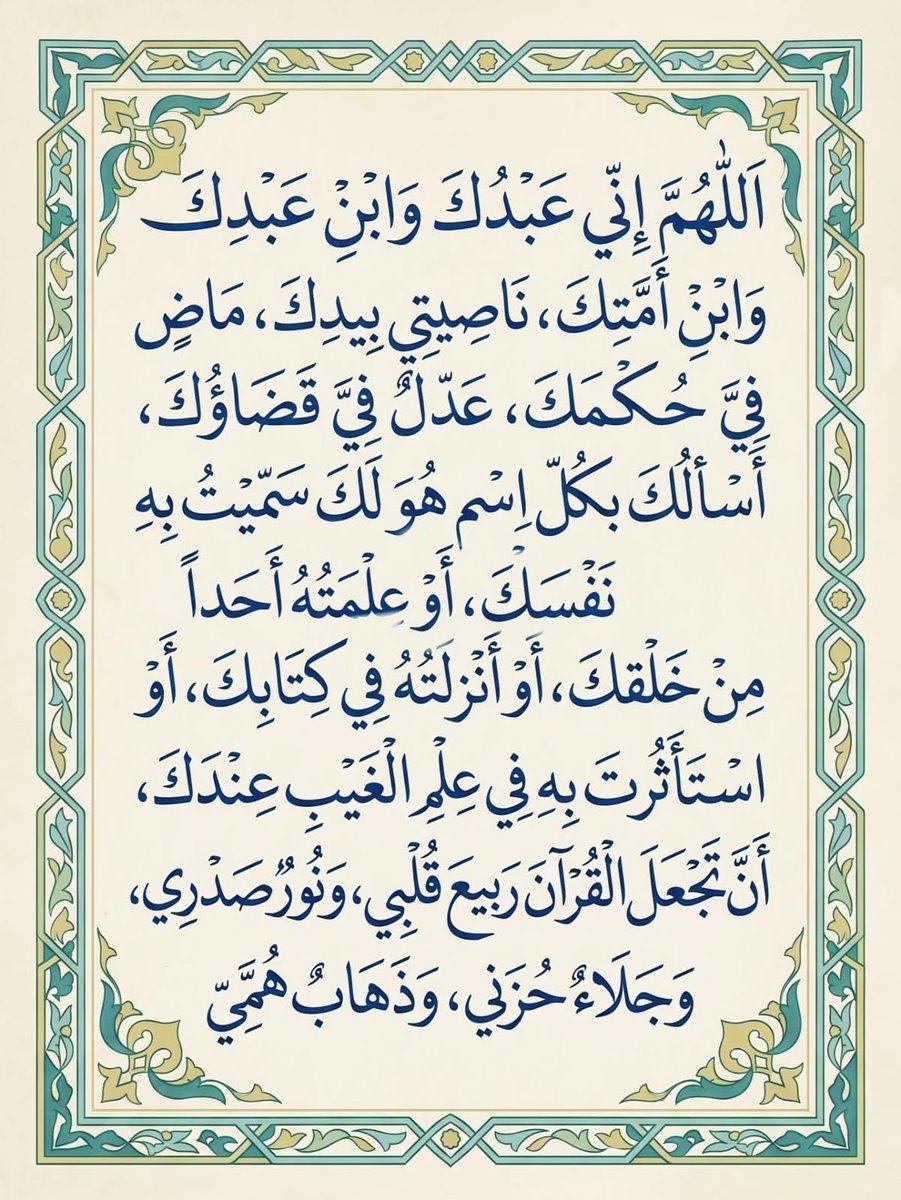 اَللّٰهُمَّ إِنّي عَبْدُكَ وَابْنِْ عَبْدِكَ
وَابْنِْ أَمَّتِكَ، نَاصِيتِي بِيدِكَ، مَاضٍ
فِيَّ حُكْمَكَ، عَدّلٌ فِيَّ قَضَاؤُكَ،
أَسْألُكَ بكُلّ اِسْم هُوَ لَكَ سَمّيْتُ بِهِ
نَفْسَكَْ، أَوْ عِلْمَتُهُ أَحَداً
مِنْ خَلْقكَ، أَوْ أَنْزلَتُهُ فِي كِتَابِكَ، أَوْ
اسْتَأَثُرتَ بِهِ فِي عِلْمِ الْغَيْبِ عِنْدَكَ،
أَنَّ تَجْعَلَ الْقُرْآنَ رَبيعَ قُلْبِي، وَنُورٌ صَدْرِي،
وَجَلَاءٌ حُزَني، وَذَهَابٌ هُمَّيّ